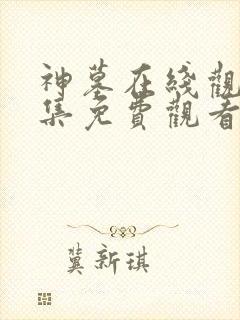 神墓在綫觀
集免費觀看
冀新琪